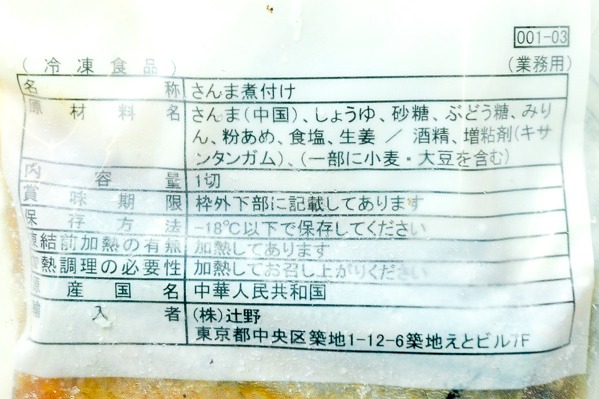 001-03
(冷凍食品)
(業務用)
名称 さんま煮付け
原材料名 さんま(中国)、しょうゆ、砂糖、ぶどう糖、みり
ん、粉あめ、食塩、生姜 / 酒精、増粘剤(キサ
ンタンガム)、(一部に小麦・大豆を含む)
内容量 1切
賞味期限 枠外下部に記載してあります
保存方法 -18℃以下で保存してください
凍結前加熱の有無 加熱してあります
加熱調理の必要性 加熱してお召し上がりください
原産国名 中華人民共和国
輸入者 (株)辻野
東京都中央区築地1-12-6築地えとビル7F